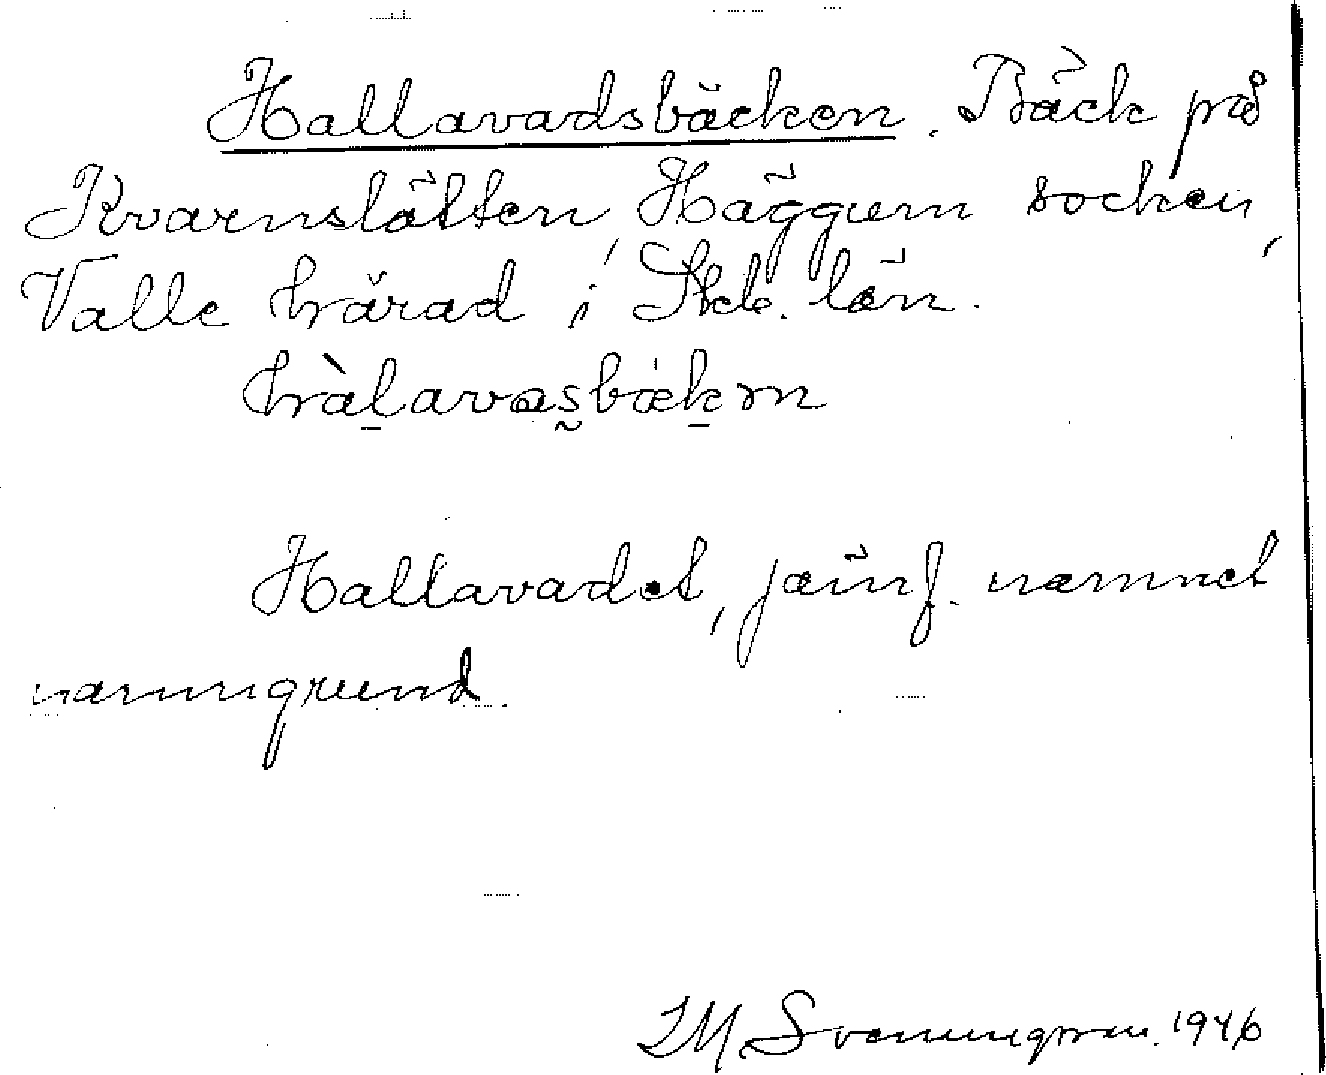 Hallavadsbäcken. Bäck på
Kvarnslätten, Häggum socken,
Valle härad i Skb. län.
hàlavasbäkən
Hallavadet, jämf. namnet
namngrund.
Sveningsson. 1946